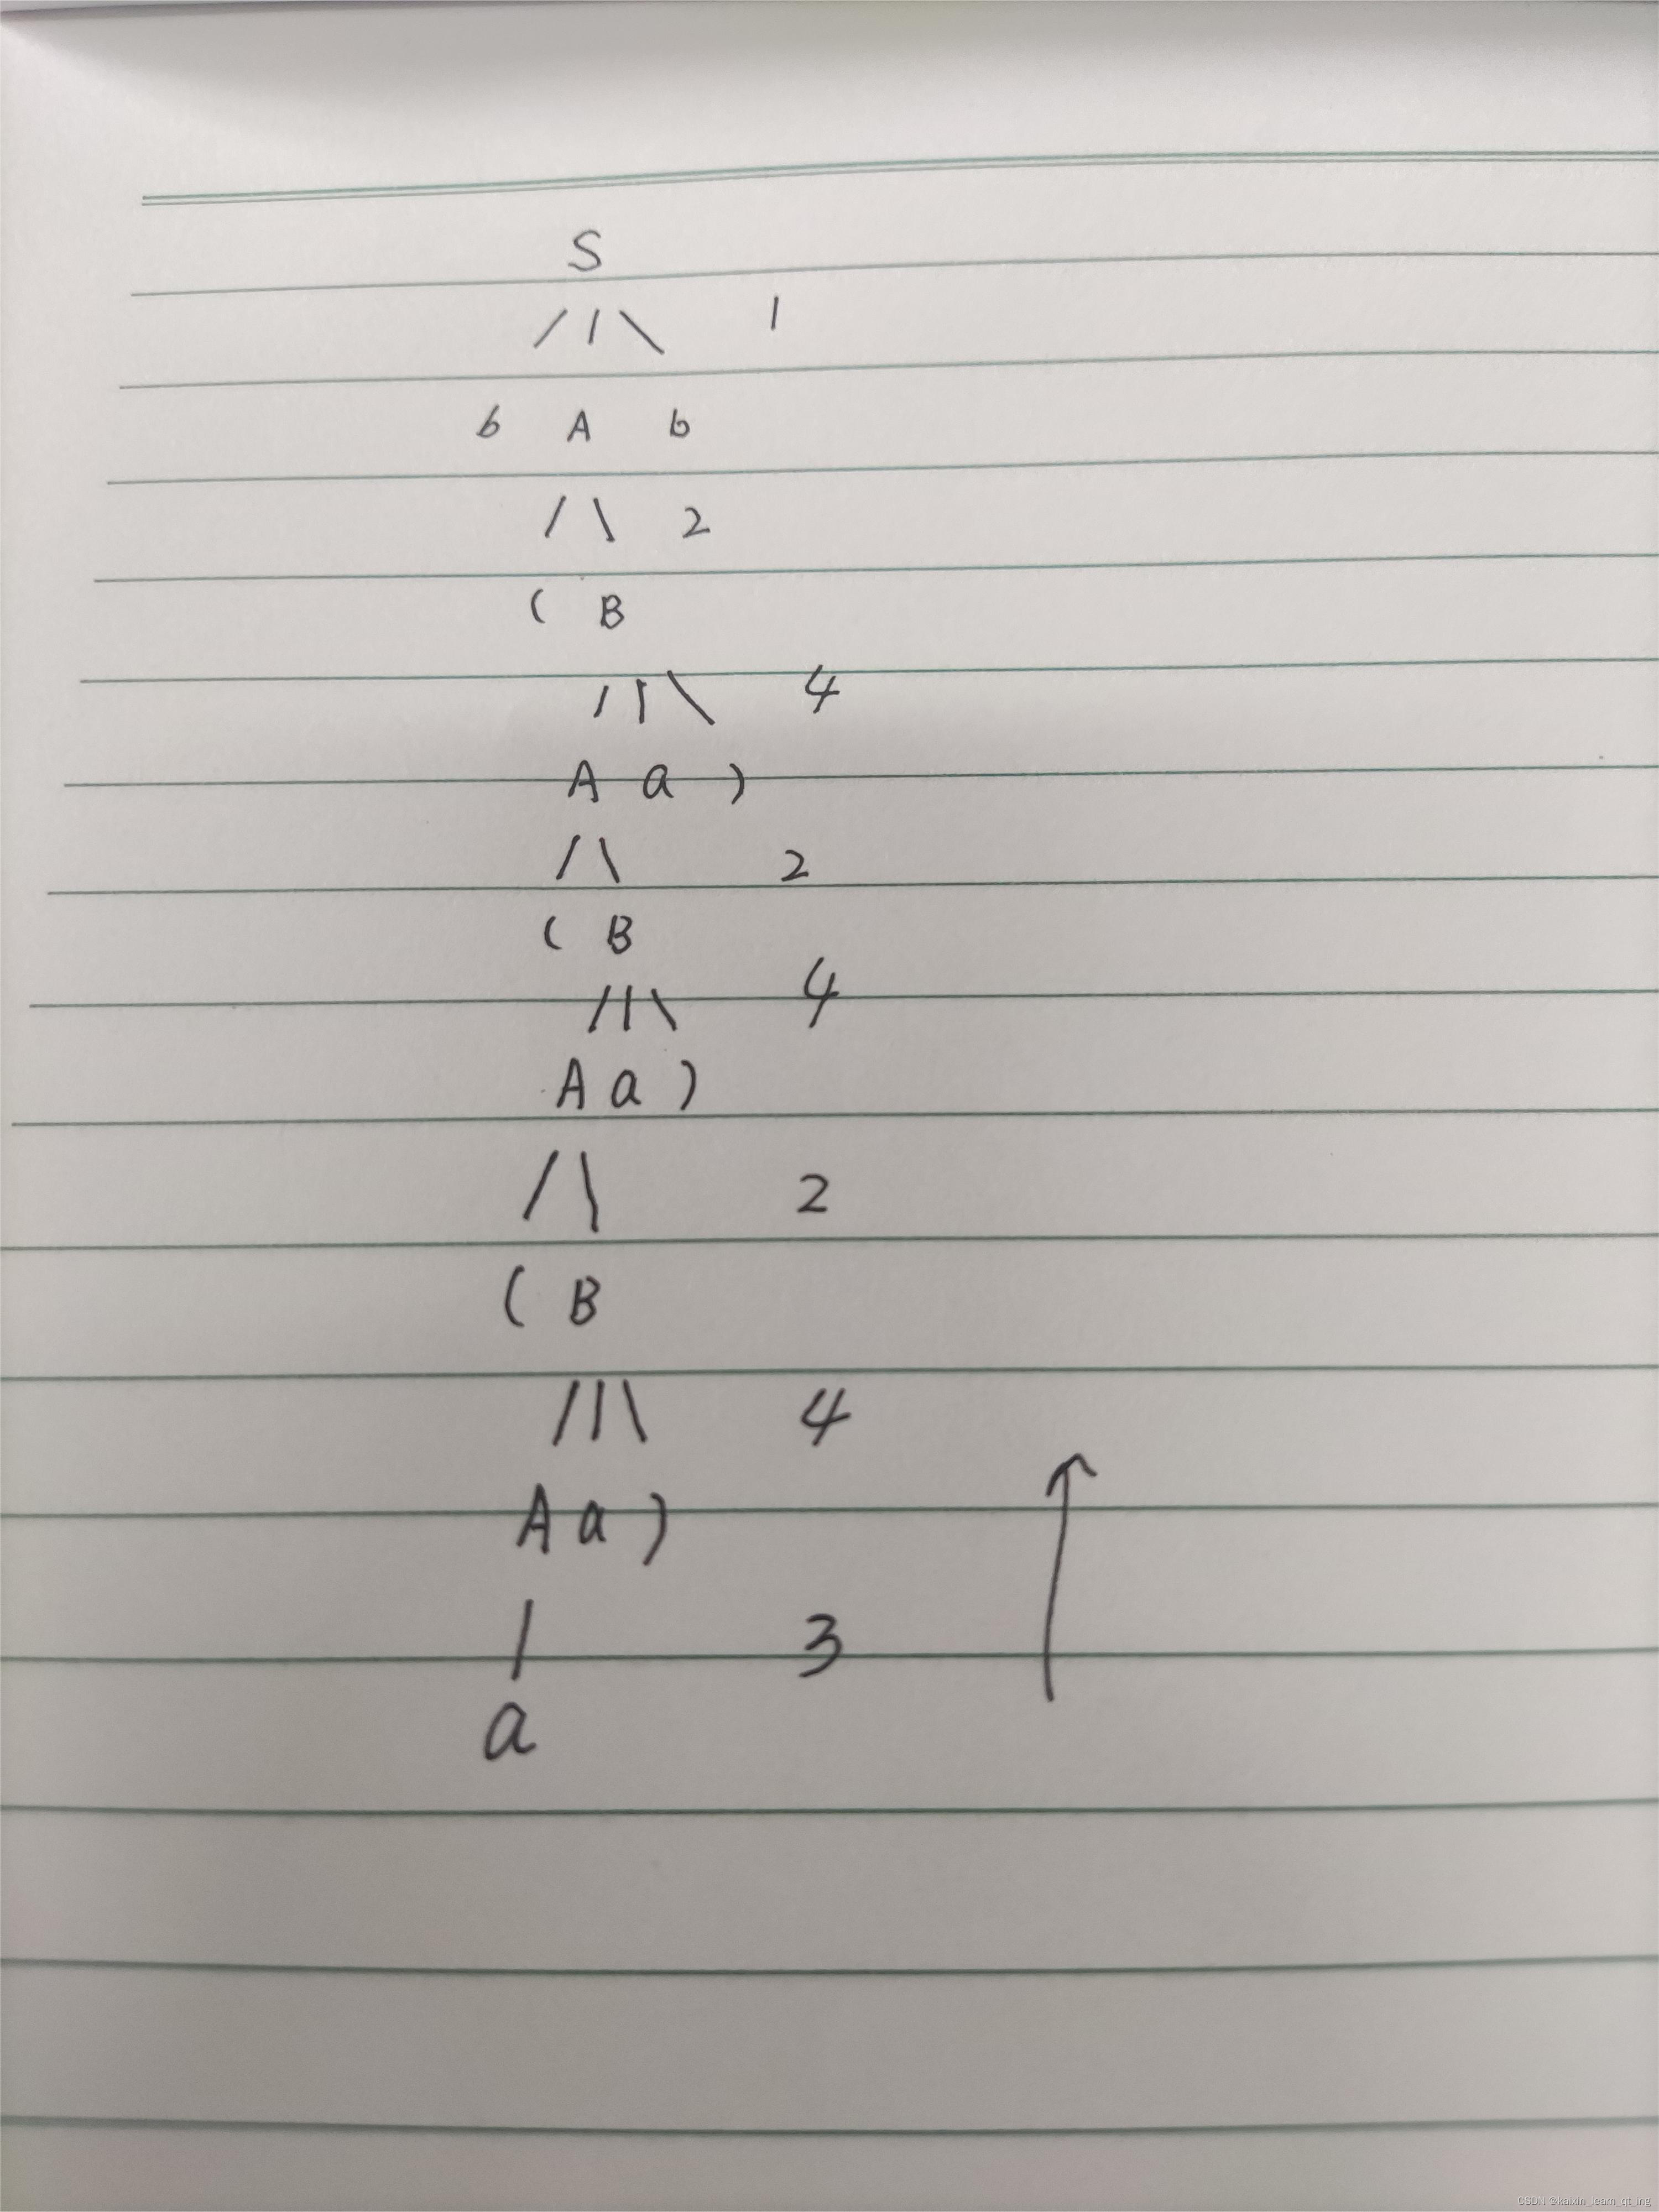 S
/ | \ 1
b A b
/ \ 2
( B
/ | \ 4
A a )
/ \ 2
( B
/ | \ 4
A a )
/ \ 2
( B
/ | \ 4
A a )
| 3
a
CSDN @kaixin_learn_qt_ing